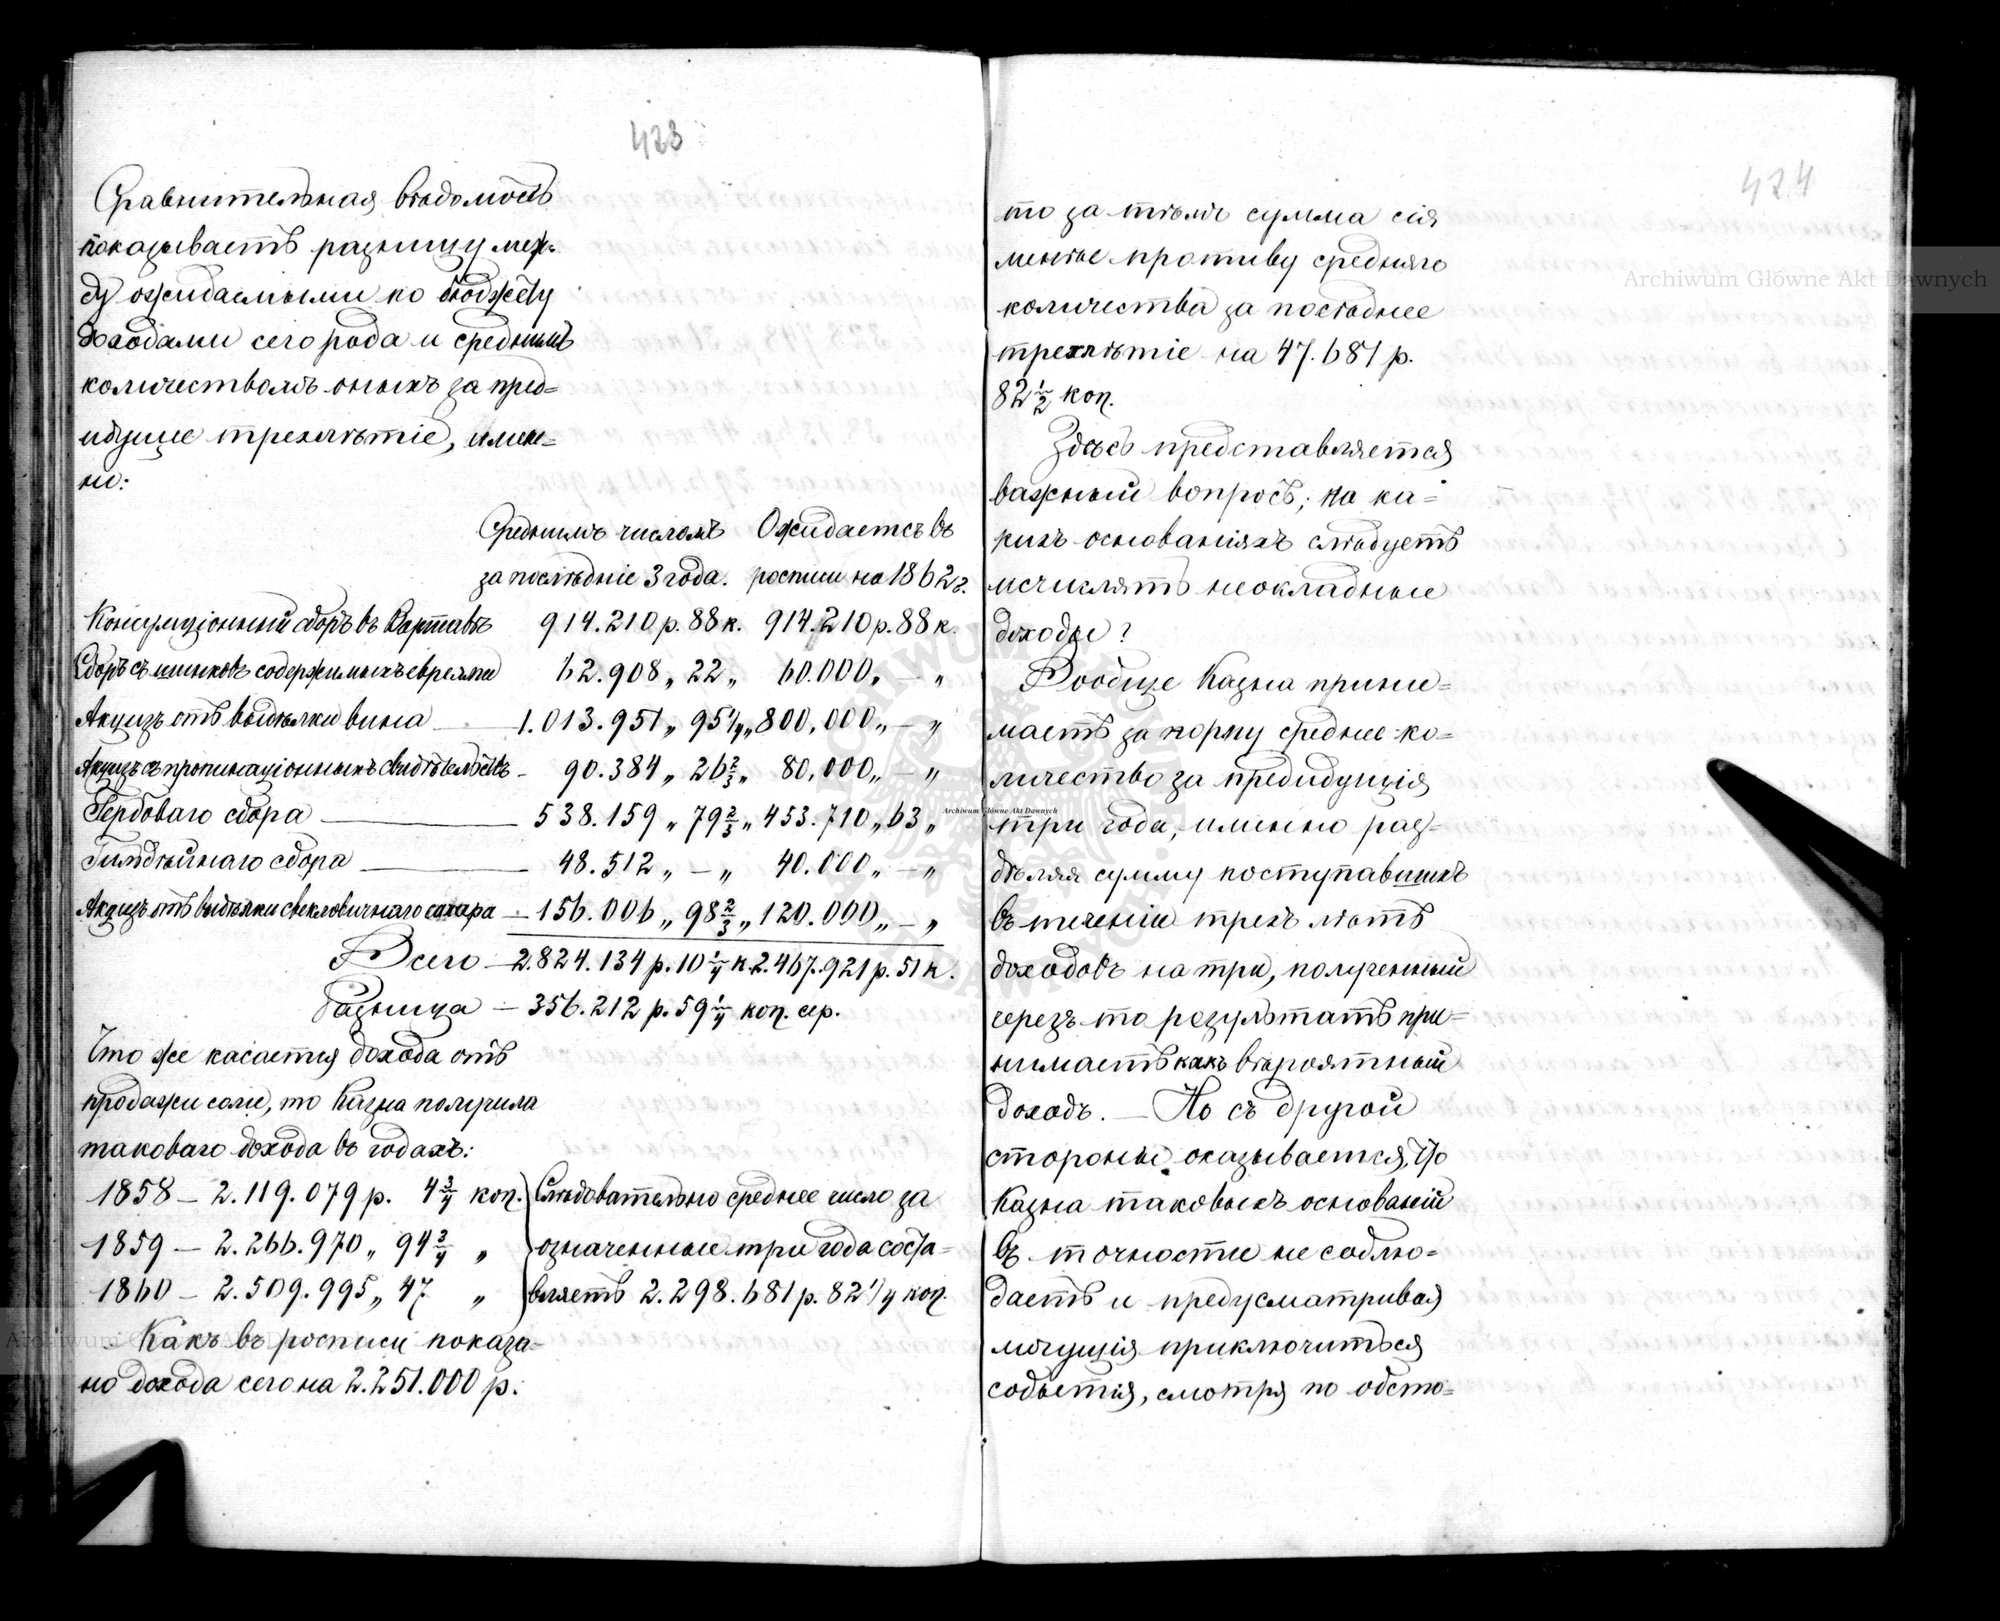 423
Сравнительная вѣдомость
показываетъ разницу меж-
ду ожидаемыми по бюджету
доходами сего рода и среднимъ
количествомъ оныхъ за пред=
идущее трехлѣтіе, имен=
но:
Среднимъ числомъ Ожидается въ
за послѣдніе 3 года. росписи на 1862 г.
Консумціонный сборъ въ Варшавѣ 914.210 р. 88 к. 914.210 р. 88 к.
Сборъ съ шинковъ содержимыхъ евреями 62.908 „ 22 „ 60.000 „ — „
Акцизъ отъ выдѣлки вина — 1.013.951 „ 95 1/4 „ 800.000 „ — „
Акцизъ съ пропинаціонныхъ свидѣтельствъ — 90.384 „ 26 2/3 „ 80,000 „ — „
Гербоваго сбора — 538.159 „ 79 2/3 „ 453.710 „ 63 „
Гильдейнаго сбора — 48.512 „ — „ 40.000 „ — „
Акцизъ отъ выдѣлки свекловичнаго сахара — 156.006 „ 98 2/3 „ 120.000 „ — „
Всего — 2.824.134 р. 10 1/4 к. 2.467.921 р. 51 к.
Разница — 356.212 р. 59 1/4 коп. сер.
Что же касается дохода отъ
продажи соли, то Казна получила
таковаго дохода въ годахъ:
1858 — 2.119.079 р. 4 3/4 коп.
1859 — 2.266.970 „ 94 3/4 „
1860 — 2.509.995 „ 47 „
Слѣдовательно среднее число за
означенные три года соста=
вляетъ 2.298.681 р. 82 1/4 коп.
Какъ въ росписи показа=
но дохода сего на 2.251.000 р.
424
то за тѣмъ сумма сія
менѣе противу средняго
количества за послѣднее
трехлѣтіе на 47.681 р.
82 1/2 коп.
Здѣсь представляется
важный вопросъ; на ка=
кихъ основаніяхъ слѣдуетъ
исчислять неокладные
доходы?
Вообще Казна прини=
маетъ за норму среднее ко=
личество за предидущія
три года, именно раз=
дѣляя сумму поступавшихъ
въ теченіи трехъ лѣтъ
доходовъ на три, полученный
черезъ то результатъ при=
нимаетъ какъ вѣроятный
доходъ. — Но съ другой
стороны оказывается, что
Казна таковыхъ основаній
въ точности не соблю=
даетъ и предусматривая
могущія приключиться
событія, смотря по обсто=
Archiwum Główne Akt Dawnych
Archiwum Główne Akt Dawnych